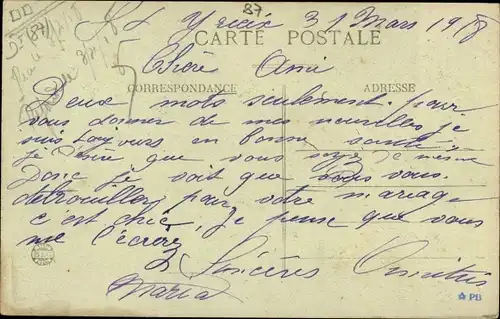 87
St Yrieix 31 Mars 1918
CARTE POSTALE
Chère Amie
CORRESPONDANCE ADRESSE
Deux mots seulement pour
vous donner de mes nouvelles je
suis toujours en bonne santé
je désire que vous soyez de même
Donc je vois que vous vous
détrouillez pour votre mariage
c'est chic, je pense que vous
me l'écrirez
Sincères Amitiés
Maria
PB